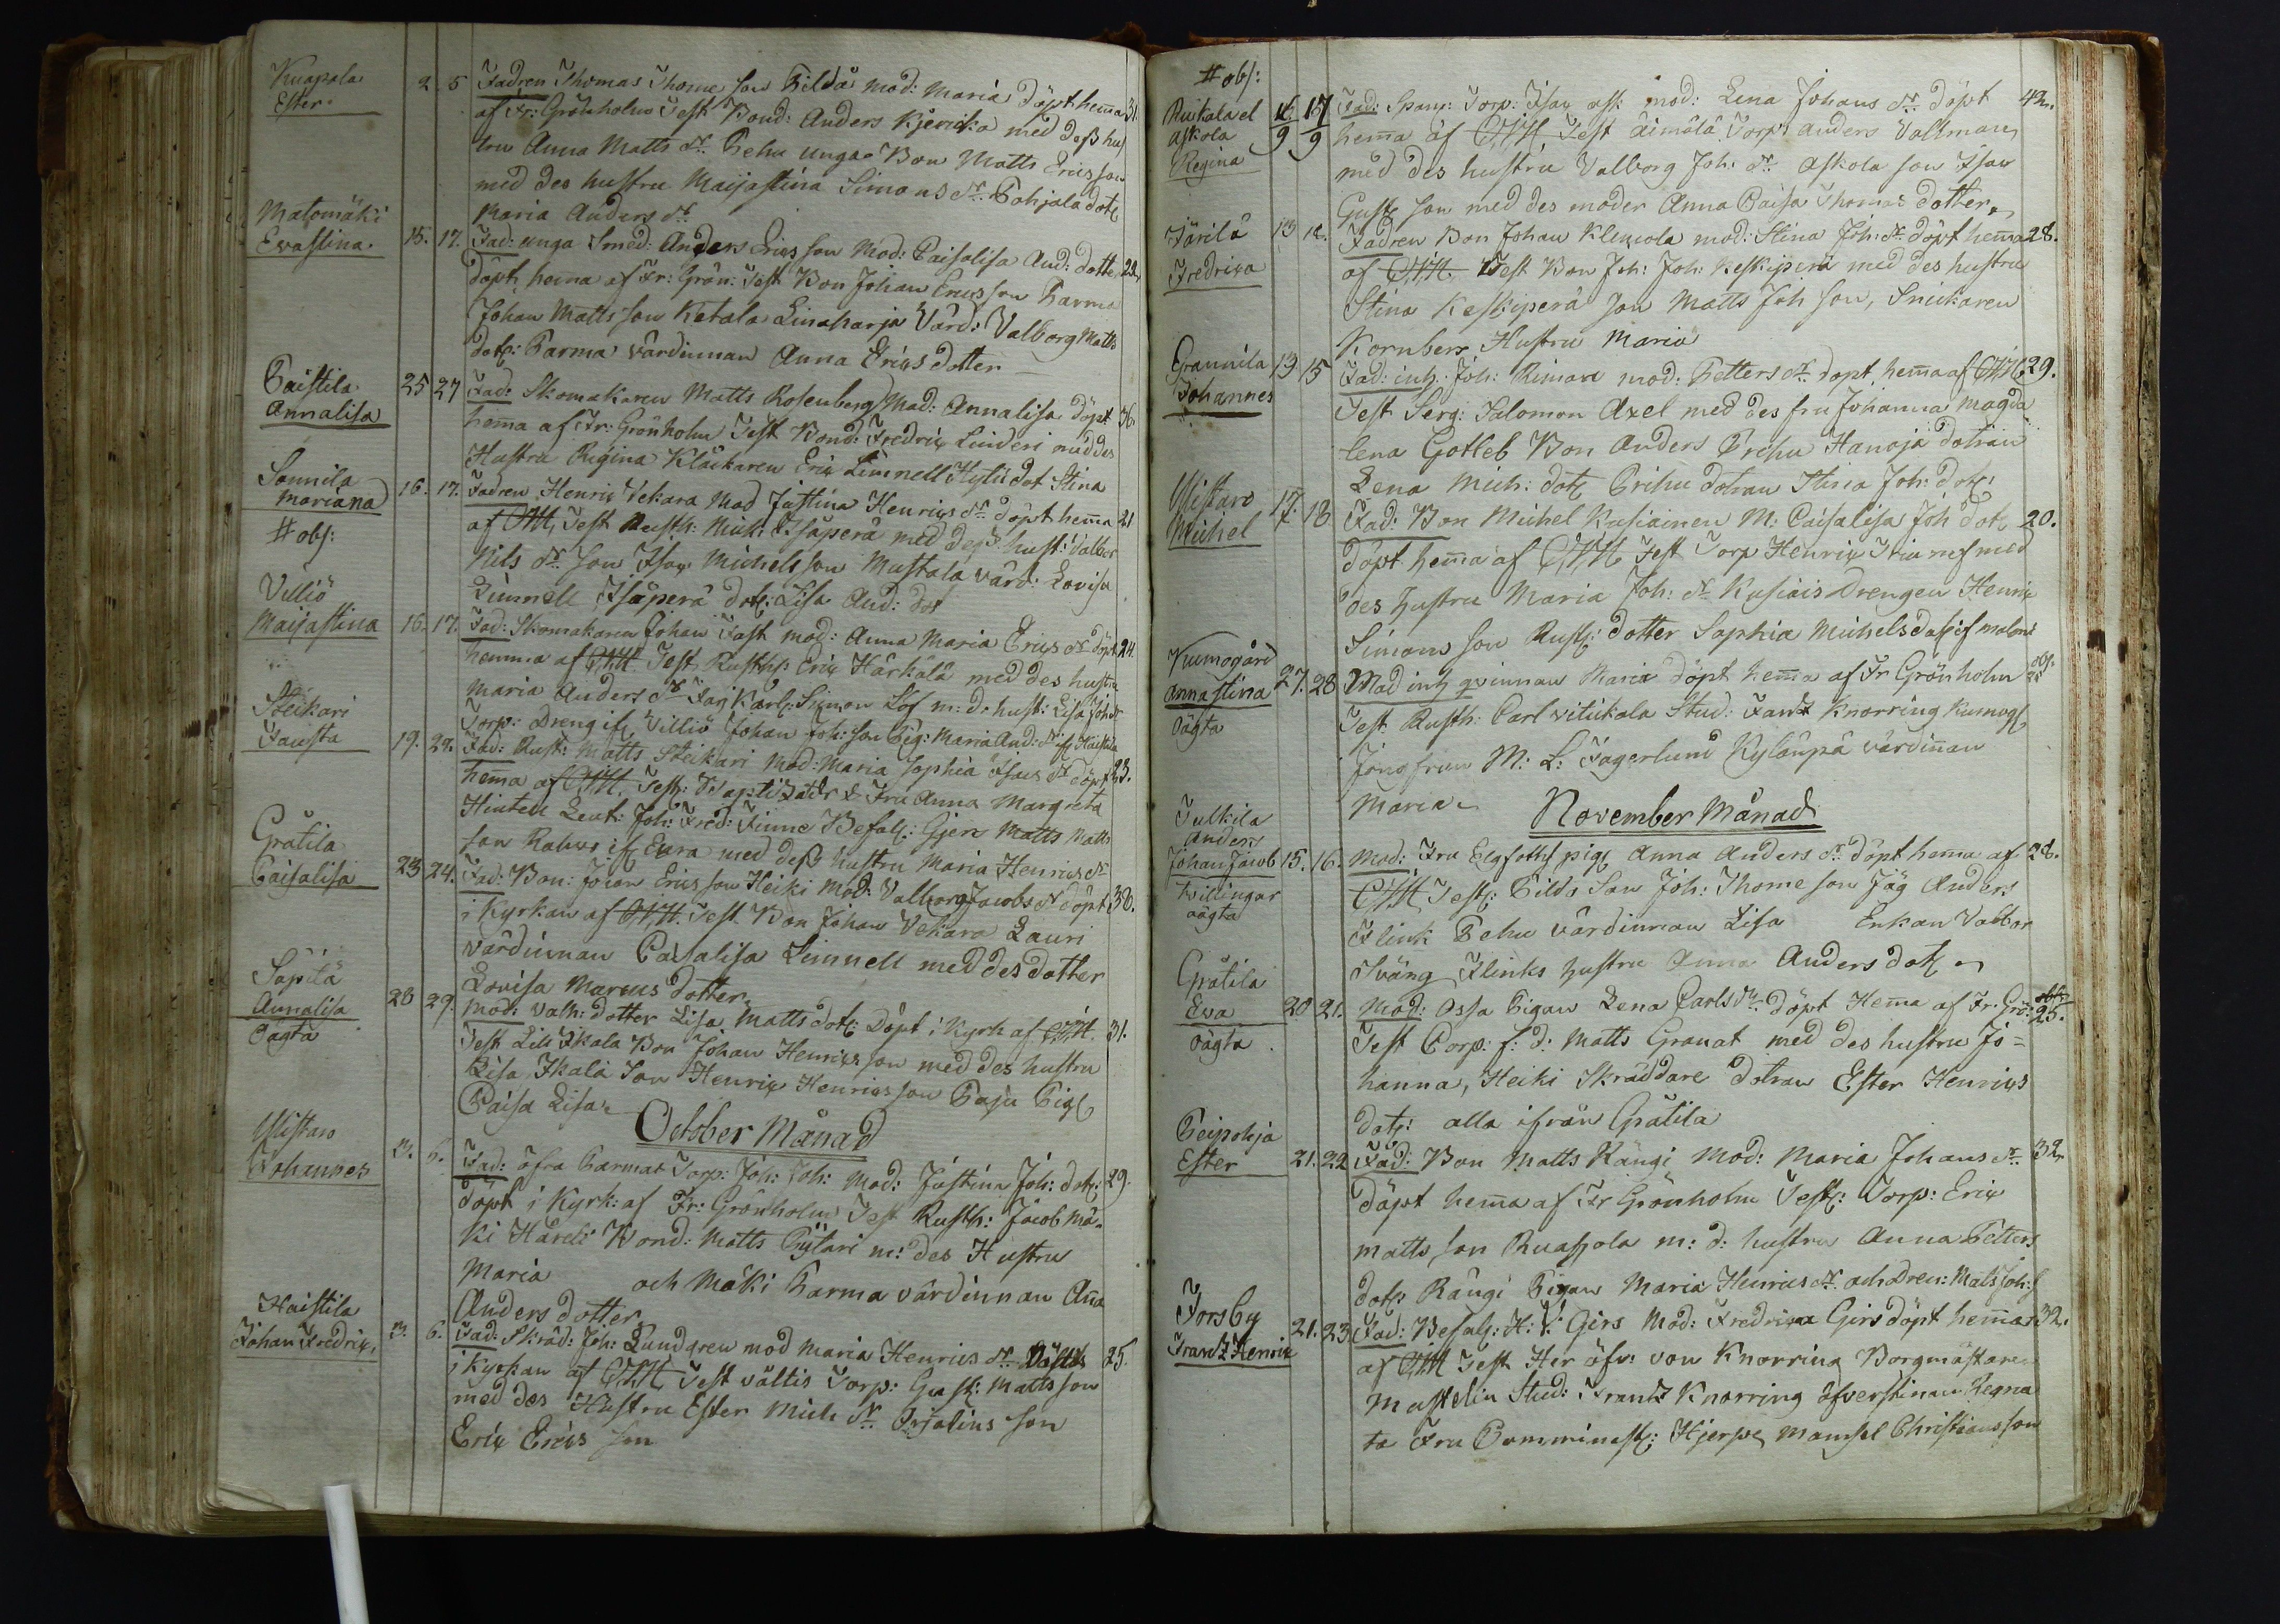 Knapala
Ester
2 5 Fadren Thomas Thome son Pildä mod: Maria döpt hem̅a 31.
af Fr: Grönholm Test Bond: Anders Kjericka med deſs hus
tru Anna Matts dr Pehu unga Bon Matts Ericsson
med des hustru Maijastina Simons dr Pohjala dotr
Maria Anders dr
Matomäki
Evastina
15. 17. Fad: unga Smed: Anders Ericsson Mod: Caisalisa And: dotte 22
döpt hem̅a af Fr: Grön: Test Bon Johan Ericsson Parma
Johan Mattsson Ketala Linaharja Värd: Valborg Matts
dotr: Parma värdinnan Anna Erics dotter
Paistila
Annalisa
25 27 Fad: Skomakaren Matts Rosenberg Mod: Annalisa döpt 36.
hema af Fr: Grönholm Test Bond: Fredric Linderi med des
Hustru Regina Klåckaren Eric Limnell Hytti dot Stina
Sannila
Mariana
# obs:
16. 17. Fadren Henric Vekara Mod Justina Henrics dr döpt hem̅a 21
af Test Rusth: Mich: Isäperä med deſs hust: Valbor
Nils dr Son Isac Michelsson Mastala värd: Lovisa
Limnell Isäperä dotr: Lisa And: dot
Villiö
Maijastina
16. 17. Fad: Skomakaren Johan Fast mod: Anna Maria Erics dr döpt 24.
hemma af Test Rusth: Eric Härkälä med des hustru
Maria Anders dr Karl: Simon Löf m: ds hust: Lisa Joh dr
Torp: Dreng if: Villiö Johan Joh: son Pig: Maria And: dr if Haistila
Steikari
Fausta
19. 22. Fad: Rust: Matts Steikari Mod: Maria Sophia Isacs dr döpt 23.
hem̅a af Test: Fru Anna Margreta
Hintell Leut: Joh: Fred: Finne Befal: Gjers Matts Matts
son if Eura med deſs hustru Maria Henrics dr
Grätila
Caisalisa
23 24. Fad: Bon: Johan Ericsson Heiki Mod: Valborg Jacobs dr döpt 30.
i Kyrkan af Test Bon Johan Vekara Lauri
värdinnan Caisalisa Limnell med des dotter
Lovisa Marcus dotter
Säpilä
Annalisa
Oägta
28 29. Mod: Valh: dotter Lisa Matts dotr: Döpt i Kyrk af 31.
Test Lill Ikala Bon Johan Henricsson med des hustru
Lisa, Ikala Son Henric Henricsson Paju Pig
Caisa Lisa
October Månad
Ylistaro
Johannes
3. 6. Fad: öfra Parmas Torp: Joh: Joh: Mod: Justina Joh: dotr: 29.
döpt i Kyrk: af Fr: Grönholm Test Rusth: Jacob Mä-
ki Hareli Bond: Matts Pytäri m: des Hustru
Maria och Mäki Parma värdinnan An̅a
Anders dotter
Haistila
Johan Fredric
3. 6. Fad: Skräd: Joh: Lundgren mod Maria Henrics dr Döptes 25.
i Kyrkan af Test vältis Torp: Gust: Mattsson
med des Hustru Ester Mich dr son
Eric Erics son
# obs:
Ruskala el
Askola
Regina
16/9 17/9 Fad: Torp: Isac mod: Lena Johans dr döpt 42.
hem̅a af Test äimälä Torp Anders Vallman
med des hustru Valborg Joh: dr Askola son Isac
Gust: son med des moder Anna Caisa Thomas dotter
Järilä
Fredrica
13 14. Fadren Bon Johan Klemola mod: Stina Joh: dr döpt hem̅a 28.
af Test Bon Joh: Joh: Keskiperä med des hustru
Stina Keskiperä Son Matts Joh son, Snickaren
Kornbers Hustru Maria
Grannila
Johannes
13. 15 Fad: inh: Joh: Riman mod: Petters dr döpt hem̅a af 29.
Test Serg: Salomon Axel med des fru Johanna Magda
lena Gotleb Bon Anders Prihu Hanoja dotran
Lena Mich: dotr Prihu dotran Stina Joh: dotr.
Ylistaro
Michel
17. 18 Fad: Bon Michel Kusiainen M: Caisalisa Joh dotr 20.
döpt hem̅a af Test Torp Henric med
des hustru Maria Joh: dr Kusiais Drengen Henric
Simons son Rusth: dotter Sophia Michels
Kumogård
Annastina
Oägta
27. 28 Mod inh qvinnan Maria döpt hem̅a af Fr Grönholm obs. 25
Test Rusth: Carl vitikala Stud: Frantz Knorring Kumog
Jungfrun M: L: Fagerlund Kylänpä värdin̅an
Maria
November Månad
Tulkila
Anders
Johan Jacob
tvillingar
oägta
15. 16. Mod: Fru Elgfoths pig Anna Anders dr döpt hem̅a af 28.
Test: Pilds Son Joh: Thome son Jäg Anders
Flink Pehu värdinnan Lisa Enkan Valbor
Sväng Flinks hustru Anna Anders dotr
Grätila
Ewa
oägta
20 21. Mod: Ossa Pigan Lena Carls dr döpt Hem̅a af Fr. Grö: obs. 25.
Test Corp: f: d: Matts Granat med des hustru Jo=
hanna, Heiki Skräddare dotran Ester Henrics
dotr: alla ifrån Grätila
Peipohja
Ester
21. 22 Fad: Bon Matts Rängi Mod: Maria Johans dr 32.
döpt hem̅a af Fr Grönholm Test: Torp: Eric
Mattsson m: d: hustru Anna Petters
dotr Rängi Pigan Maria Henrics dr och Dren: Mats Joh: s
Forsby
Frantz Henric
21. 23 Fad: Befal: H: V: Girs Mod: Fredrica Girs döpt hem̅as 32.
af Test Her öfv: von Knorring Borgmästaren
Mastelin Stud: Frantz Knorring öfverstinnan Regna
ta Fru Comminist: Hjerpe Mamsel Christiansson